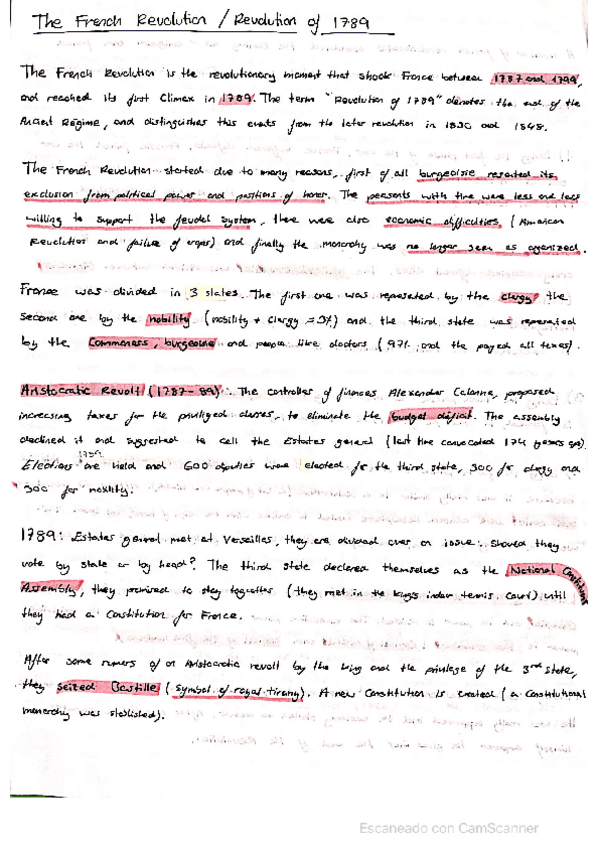 The French Revolution / Revolution of 1789
The French Revolution is the revolutionary moment that shook France between 1787 and 1799,
and reached its first Climax in 1789. The term "Revolution of 1789" denotes the end of the
Ancient Régime, and distinguishes this events from the later revolution in 1830 and 1848.
The French Revolution started due to many reasons, first of all burgeoisie resented its
exclusion from political power and positions of honor. The peasants with time were less and less
willing to support the feudal system, there were also economic difficulties (American
Revolution and failure of crops) and finally the monarchy was no longer seen as organized.
France was divided in 3 states. The first one was represented by the clergy the
second one by the nobility (nobility + clergy = 3%) and the third state was represented
by the Commoners, burgeoise and people like doctors (97% and the payed all taxes).
Aristocratic Revolt (1787-89): The controller of finances Alexander Calonne, proposed
increasing taxes for the privileged classes, to eliminate the budget déficit. The assembly
declined it and suggested to call the Estates general (last time convocated 174 years ago).
1789
Elections are held and 600 deputies were elected for the third state, 300 for clergy and
300 for nobility.
1789: Estates general met at Versailles, they are divided over an issue: should they
vote by state or by head? The third state declared themselves as the National Constitions
Assembly, they promised to stay together (they met in the king's indoor tennis court) until
they had a Constitution for France.
After some rumors of an Aristocratic revolt by the king and the privilege of the 3rd State,
they seized Bastille (symbol of royal tirany). A new Constitution is created (a Constitutional
monarchy was stablished).
Escaneado con CamScanner